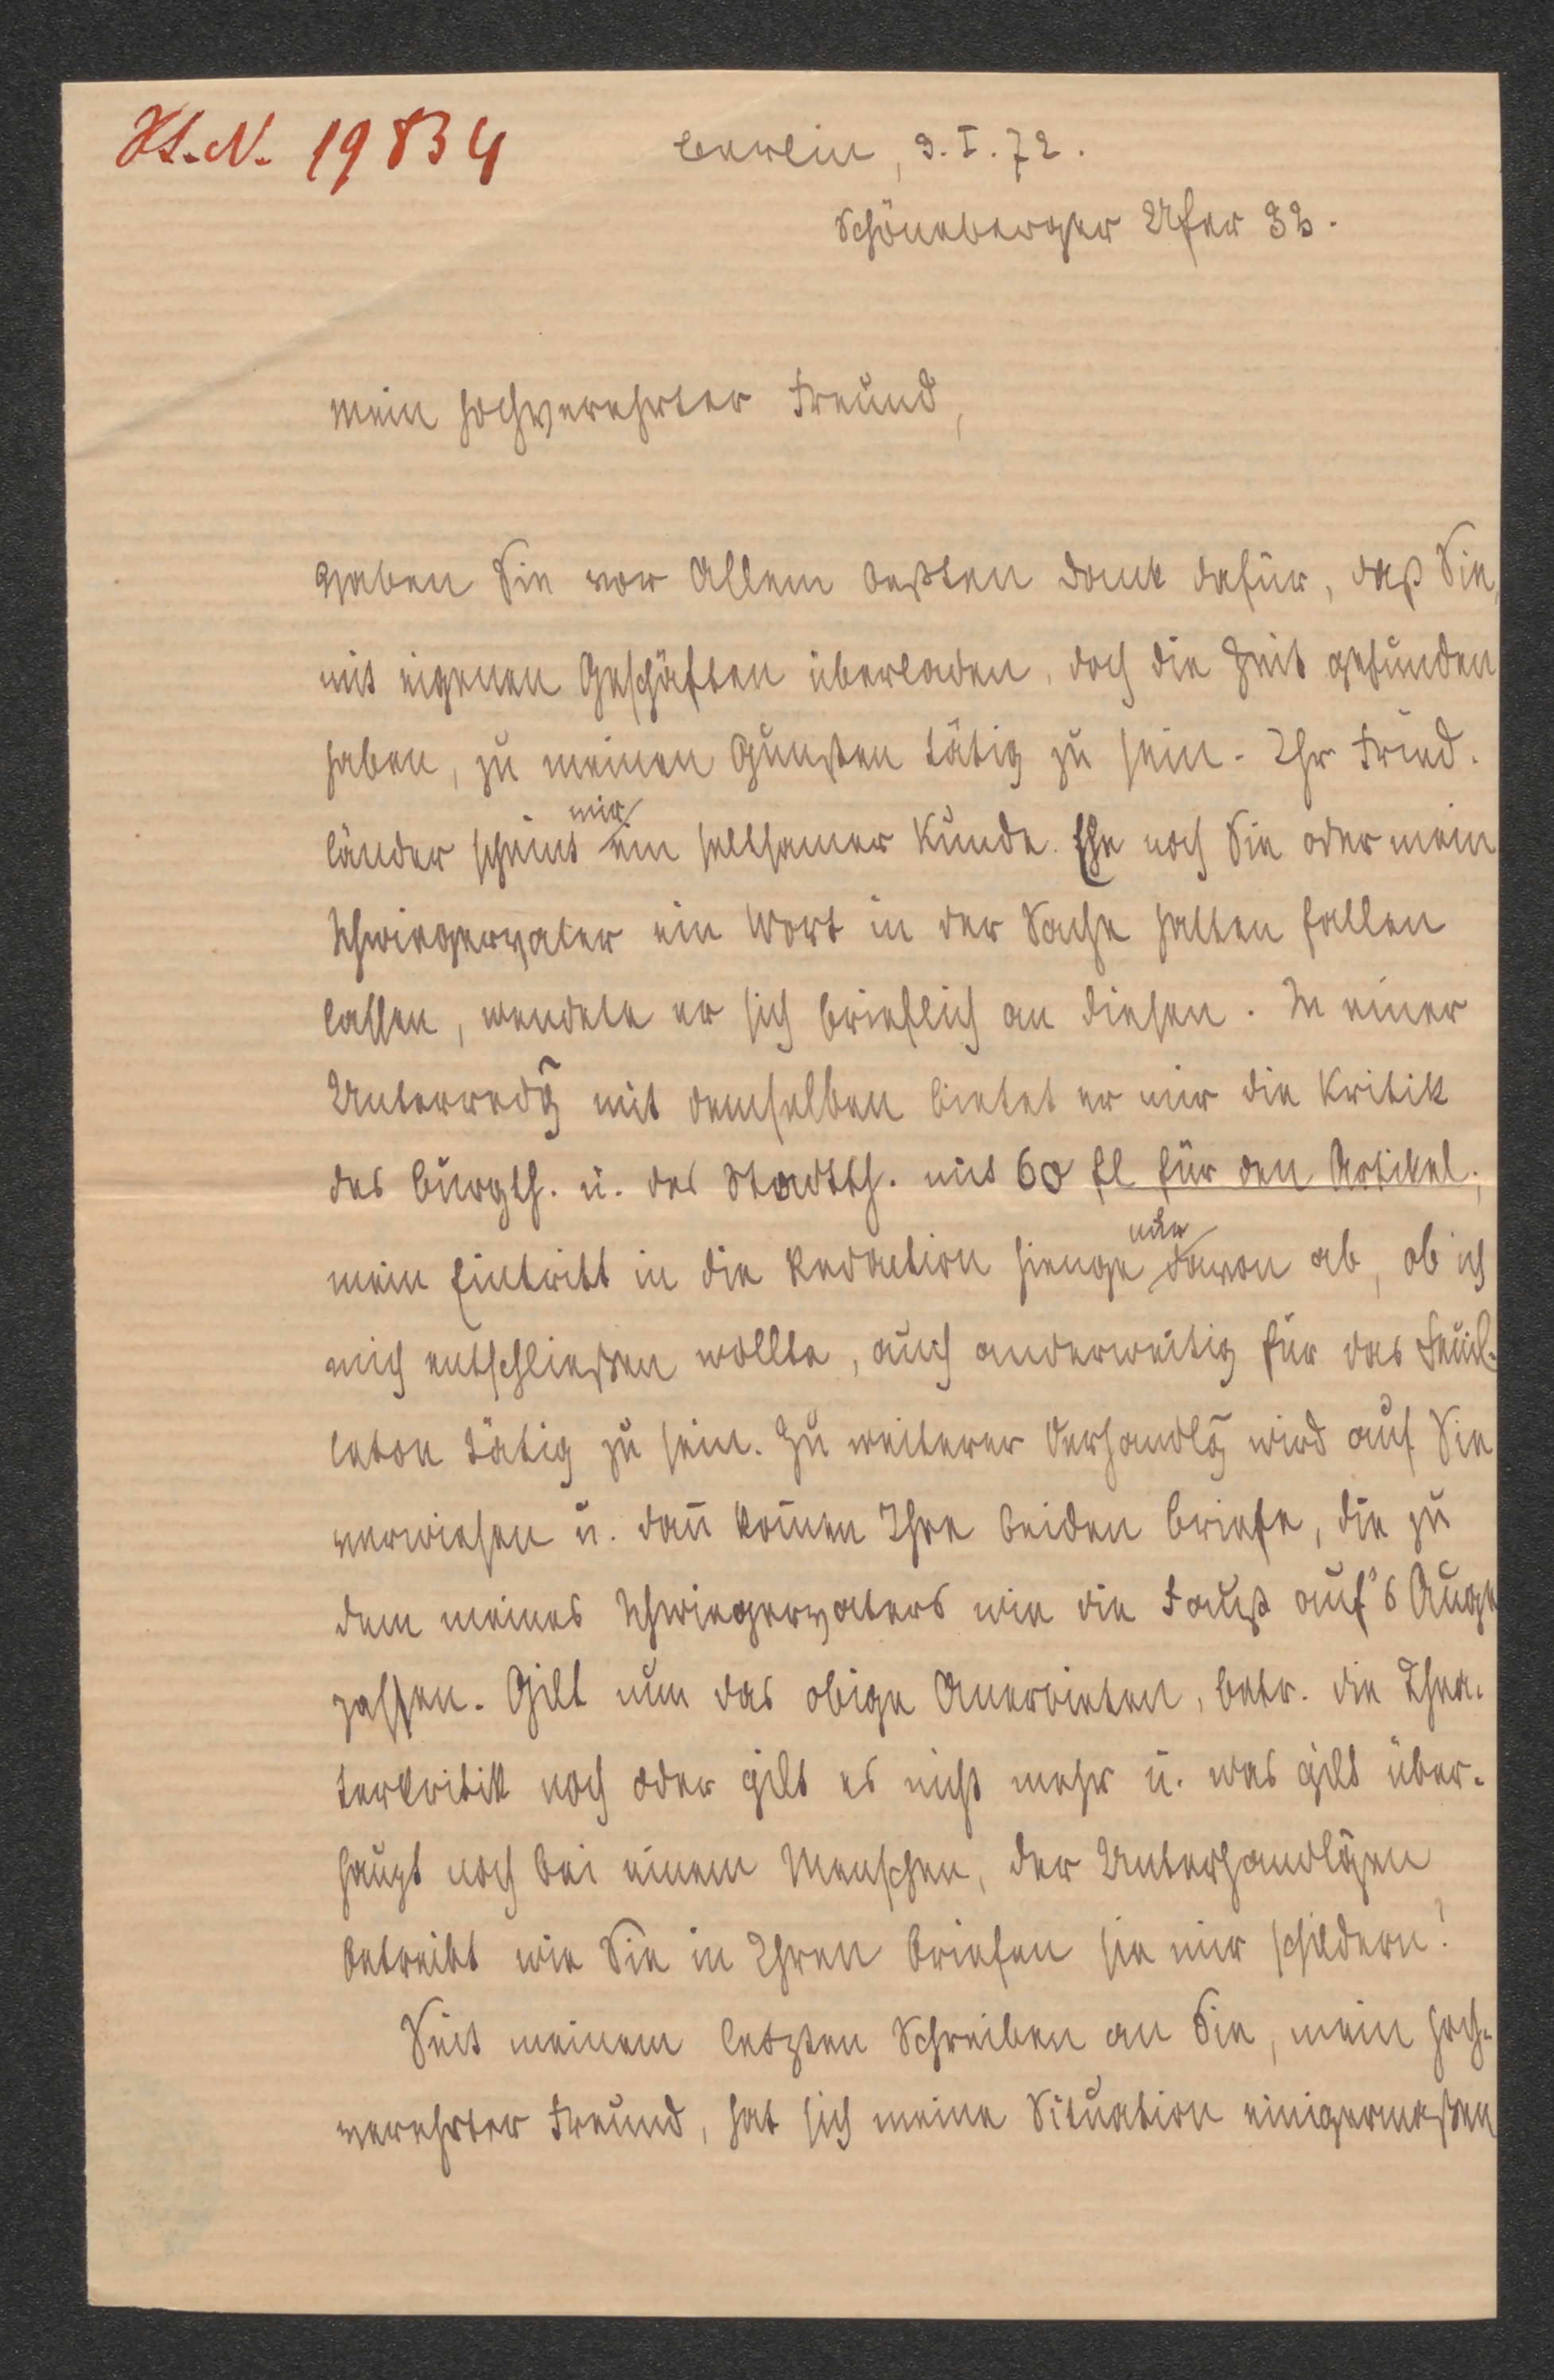 H.I.N. 19834
Berlin, 9.I.72.
Schöneberger Ufer 32.
Mein hochverehrter Freund,
Haben Sie vor Allem besten Dank dafür, daß Sie,
mit eigenen Geschäften überladen, doch die Zeit gefunden
haben, zu meinen Gunsten tätig zu sein. Ihr Fried-
länder scheint mir ein seltsamer Kunde. Ehe noch Sie oder mein
Schwiegervater ein Wort in der Sache hatten fallen
lassen, wendete er sich brieflich an diesen. In einer
Unterredg̃ mit demselben bietet er mir die Kritik
des Burgth. u. des Stadtth. mit 60 fl für den Artikel;
mein Eintritt in die Redaction hienge nur davon ab, ob ich
mich entschließen wollte, auch anderweitig für das Feuil-
leton tätig zu sein. Zu weiterer Verhandlg̃ wird auf Sie
verwiesen u. dañ kom̃en Ihre beiden Briefe, die zu
dem meines Schwiegervaters wie die Faust auf's Auge
passen. Gilt nun das obige Anerbieten, betr. die Thea-
terkritik noch oder gilt es nicht mehr u. was gilt über-
haupt noch bei einem Menschen, der Unterhandlg̃en
betreibt wie Sie in Ihren Briefen sie mir schildern?
Seit meinem letzten Schreiben an Sie, mein hoch-
verehrter Freund, hat sich meine Situation einigermaßen